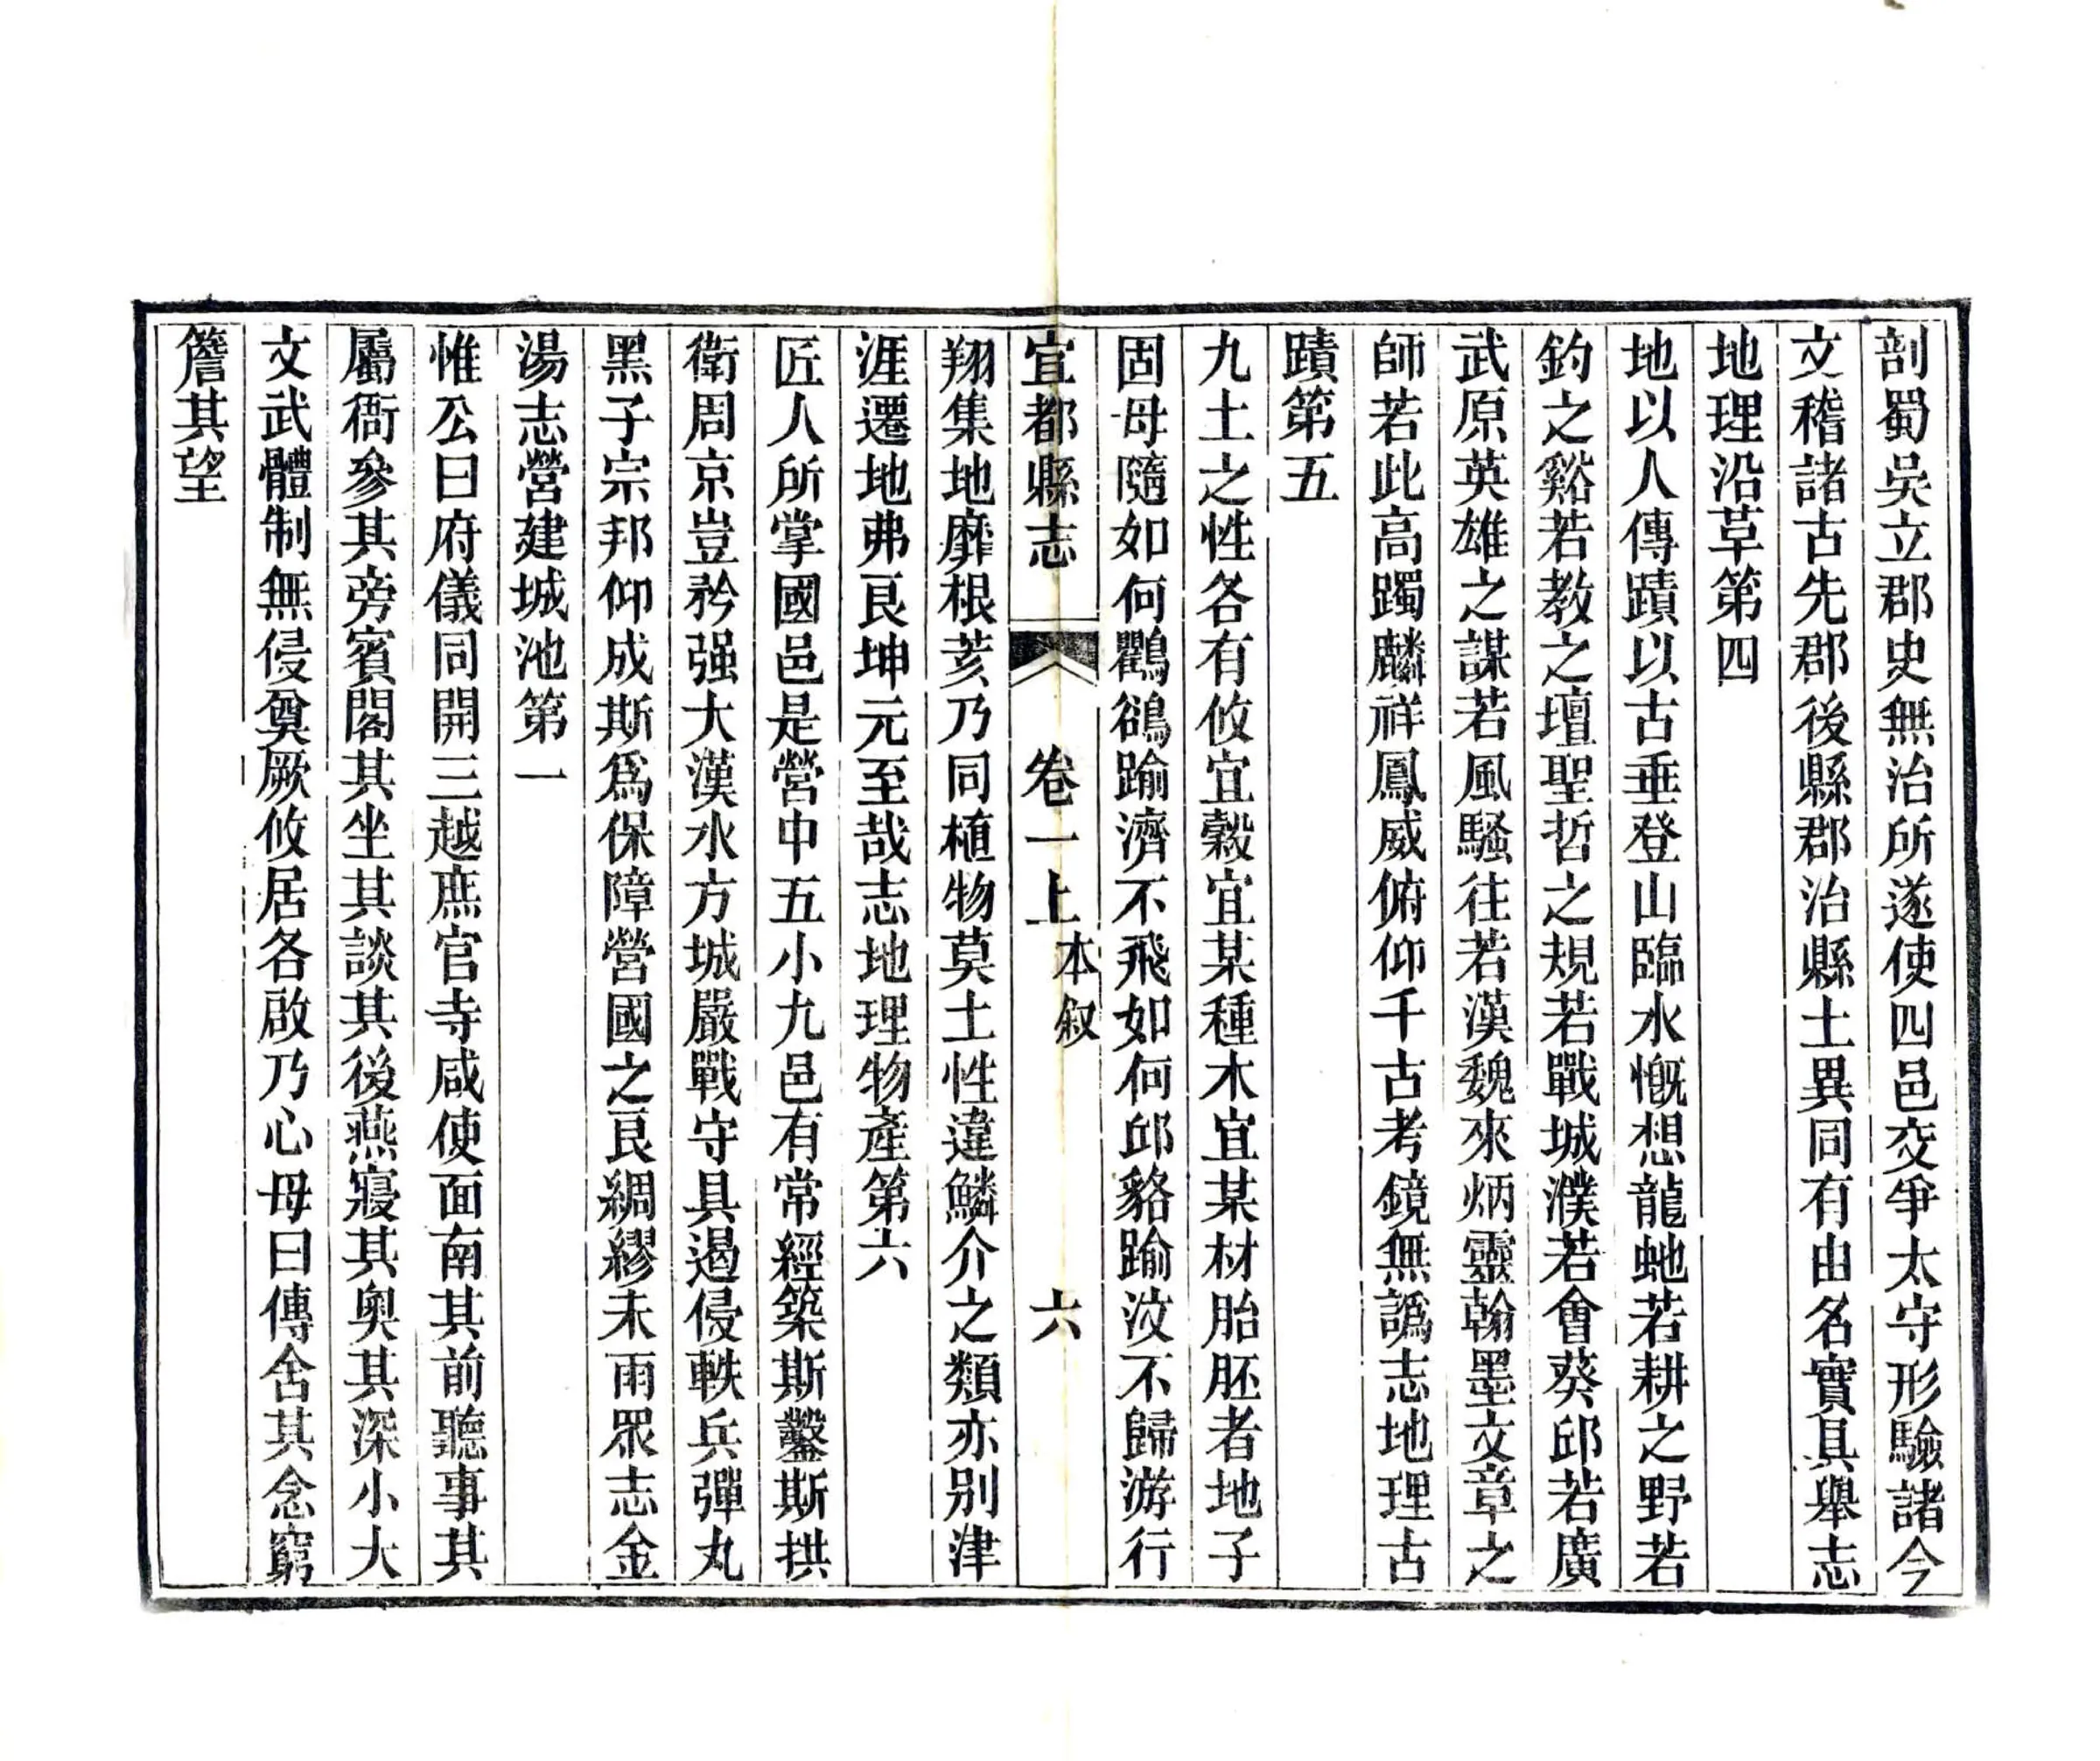 剖蜀吳立郡史無治所遂使四邑交爭太守形驗諸今
文稽諸古先郡後縣郡治縣土異同有由名實具舉志
地理沿草第四
地以人傳蹟以古垂登山臨水慨想龍虵若耕之野若
釣之谿若教之壇聖哲之規若戰城濮若會葵邱若廣
武原英雄之謀若風騷往若漢魏來炳靈翰墨文章之
師若此高躅麟祥鳳威俯仰千古考鏡無譌志地理古
蹟第五
九土之性各有攸宜穀宜某種木宜某材胎胚者地子
固母隨如何鸜鵒踰濟不飛如何邱貉踰汶不歸游行
宜都縣志 卷一上 本叙 六
翔集地靡根荄乃同植物莫土性違鱗介之類亦别津
涯遷地弗艮坤元至哉志地理物產第六
匠人所掌國邑是營中五小九邑有常經築斯鑿斯拱
衛周京豈矜强大漢水方城嚴戰守具遏侵軼兵彈丸
黑子宗邦仰成斯爲保障營國之艮綢繆未雨眾志金
湯志營建城池第一
惟公曰府儀同開三越庶官寺咸使面南其前聽事其
屬衙參其旁賓閣其坐其談其後燕寢其奥其深小大
文武體制無侵奠厥攸居各啟乃心毋曰傳舍其念窮
簷其望